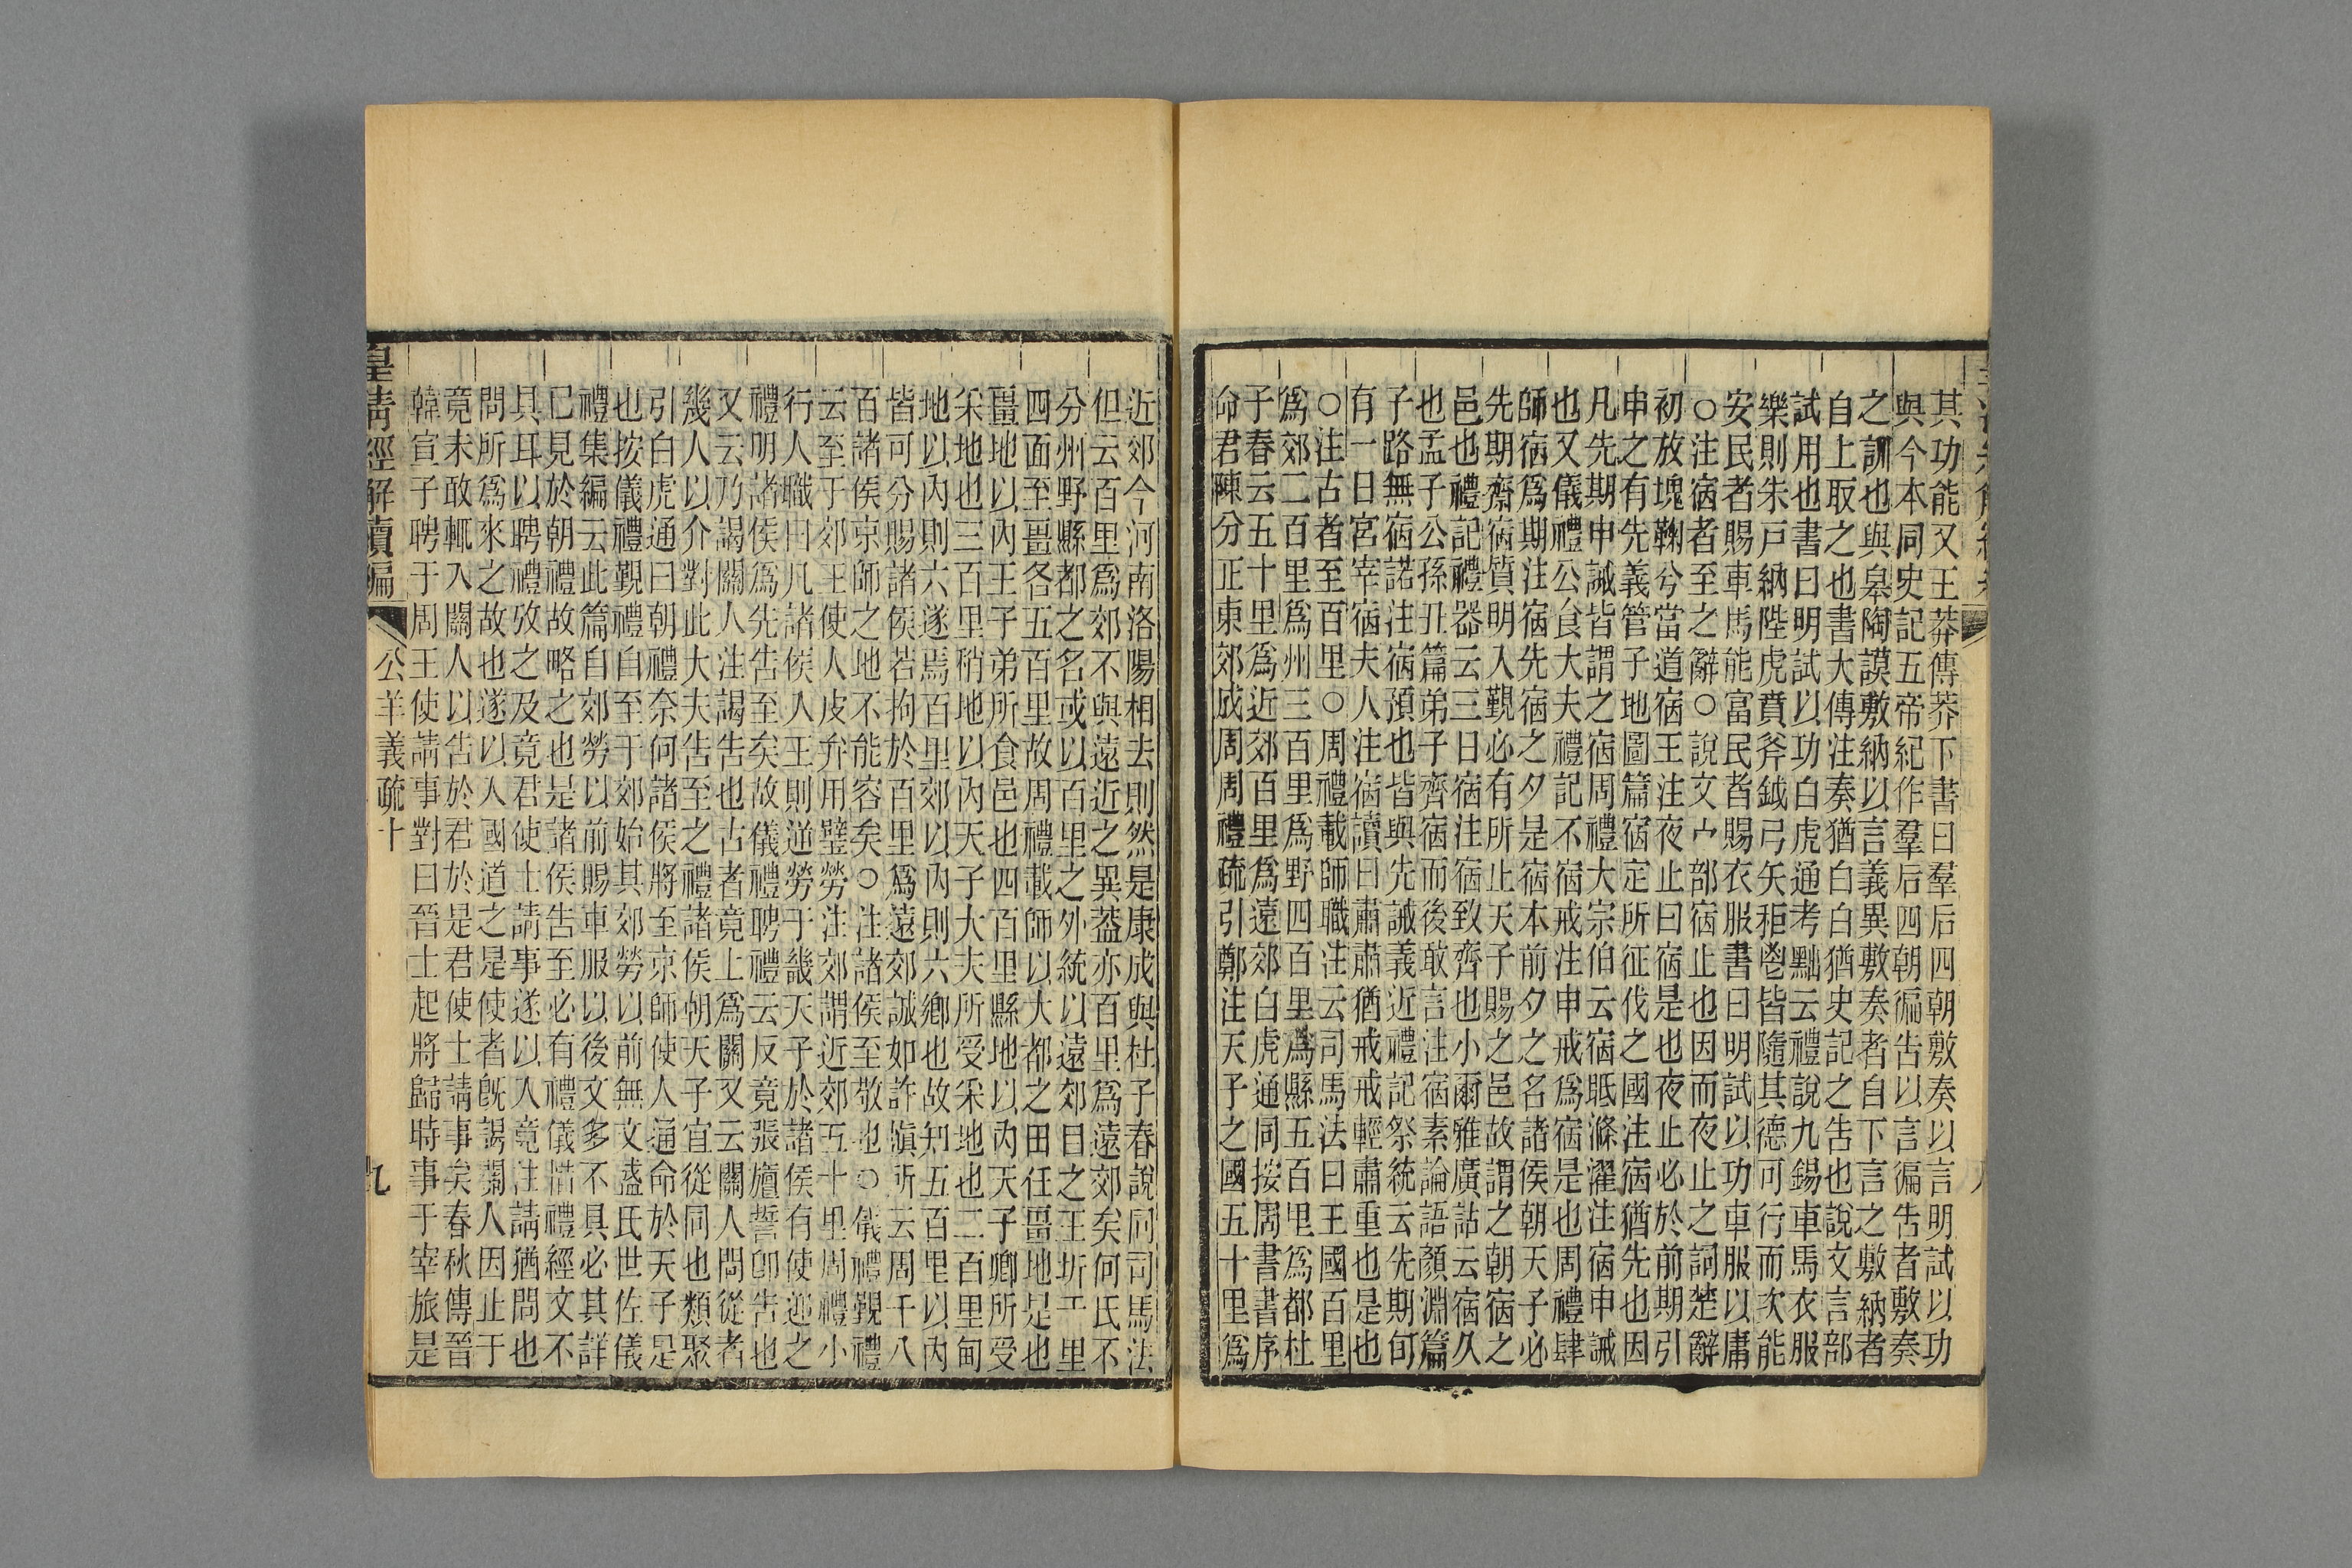 其功能又王莽傳莽下書曰羣后四朝敷奏以言明試以功
與今本同史記五帝紀作羣后四朝徧告以言徧告者敷奏
之訓也與皋陶謨敷納以言義異敷奏者自下言之敷納者
自上取之也書大傳注奏猶白白猶史記之告也說文言部
試用也書曰明試以功白虎通考黜云禮說九錫車馬衣服
樂則朱戸納陛虎賁斧鉞弓矢秬鬯皆隨其德可行而次能
安民者賜車馬能富民者賜衣服書曰明試以功車服以庸
○注宿者至之辭○說文宀部宿止也因而夜止之詞楚辭
初放塊鞠兮當道宿王注夜止曰宿是也夜止必於前期引
申之有先義管子地圖篇宿定所征伐之國注宿猶先也因
凡先期申誡皆謂之宿周禮大宗伯云宿眡滌濯注宿申誡
也又儀禮公食大夫禮記不宿戒注申戒爲宿是也周禮肆
師宿爲期注宿先宿之夕是宿本前夕之名諸侯朝天子必
先期齋宿質明入覲必有所止天子賜之邑故謂之朝宿之
邑也禮記禮器云三日宿注宿致齊也小爾雅廣詁云宿久
也孟子公孫丑篇弟子齊宿而後敢言注宿素論語顏淵篇
子路無宿諾注宿預也皆與先誡義近禮記祭統云先期旬
有一日宮宰宿夫人注宿讀曰肅肅猶戒戒輕肅重也是也
○注古者至百里○周禮載師職注云司馬法曰王國百里
爲郊二百里爲州三百里爲野四百里爲縣五百里爲都杜
子春云五十里爲近郊百里爲遠郊白虎通同按周書書序
命君陳分正東郊成周周禮疏引鄭注天子之國五十里爲
近郊今河南洛陽相去則然是康成與杜子春說同司馬法
但云百里爲郊不與遠近之異葢亦百里爲遠郊矣何氏不
分州野縣都之名或以百里之外統以遠郊目之王圻千里
四面至畺各五百里故周禮載師以大都之田任畺地是也
畺地以內王子弟所食邑也四百里縣地以內天子卿所受
采地也三百里稍地以內天子大夫所受采地也二百里甸
地以內則六遂焉百里郊以內則六鄉也故知五百里以內
皆可分賜諸侯若拘於百里爲遠郊誠如許愼所云周千八
百諸侯京師之地不能容矣○注諸侯至敬也○儀禮覲禮
云至于郊王使人皮弁用璧勞注郊謂近郊五十里周禮小
行人職曰凡諸侯人王則逆勞于畿天子於諸侯有使迎之
禮明諸侯爲先告至矣故儀禮聘禮云反竟張旜誓卽告也
又云乃謁關人注謁告也古者竟上爲關又云關人問從者
幾人以介對此大夫告至之禮諸侯朝天子宜從同也類聚
引白虎通曰朝禮奈何諸侯將至京師使人通命於天子足
也按儀禮覲禮自至于郊始其郊勞以前無文盛氏世佐儀
禮集編云此篇自郊勞以前賜車服以後文多不具必其詳
已見於朝禮故略之也是諸侯告至必有禮儀惜禮經文不
具耳以聘禮攷之及竟君使士請事遂以入竟注請猶問也
問所爲來之故也遂以入國道之是使者旣謁關人因止于
竟未敢輒入關人以告於君於是君使士請事矣春秋傳晉
韓宣子聘于周王使請事對曰晉士起將歸時事于宰旅是
皇淸經解續編
公羊義疏十
九